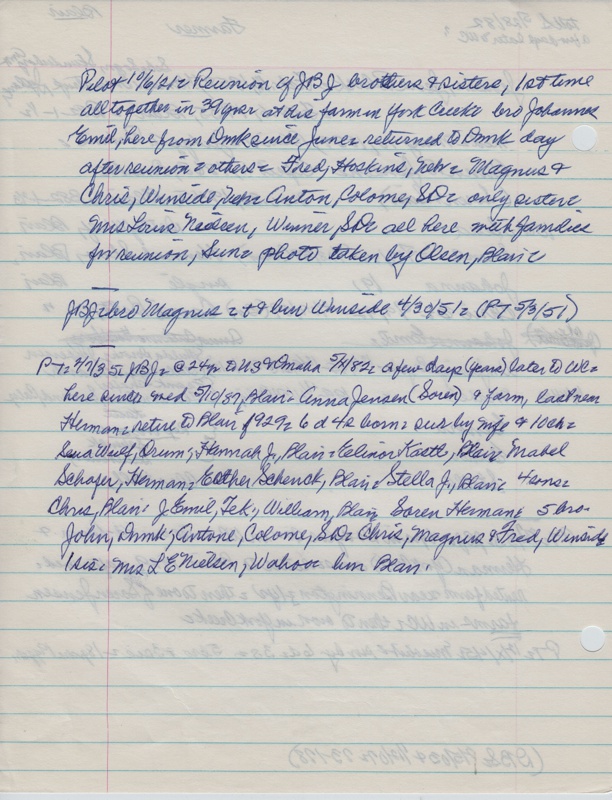 Pilot 10/6/21 = Reunion of JBJ brothers & sisters, 1st time
all together in 39 years at his farm in York Creek = bro Johannes
Emil, here from Dmk since June = returned to Dmk day
after reunion = others = Fred, Hoskins, Neb = Magnus &
Chris, Winside, Neb = Anton, Colome, SD = only sister =
Mrs Louis Nielsen, Winner, SD = all here with families
for reunion, Sun = photo taken by Olsen, Blair =
JBJ = bro Magnus = + & bur Winside 4/30/51 = (PT 5/3/51)
PT = JBJ = @ 24 yrs to US & Omaha = a few days (years) later to WC =
here since = med 5/10/87, Blair = Anna Jensen (Soren) & farm, last near
Herman = retire to Blair 1929 = 6 d 4 s born = sur by wife & 10 ch =
Lena Wulf, Orum; Hannah J, Blair = Elinor Kaett, Blair = Mabel
Schafer, Herman = Esther Schenck, Blair = Stella J, Blair = 4 sons =
Chris, Blair = J Emil, Tek; William, Blair Soren Herman = 5 bro =
John, Dmk; Antone, Colome, SD = Chris, Magnus & Fred, Winside
1 sis = Mrs L E Nielsen, Wahoo = bur Blair.